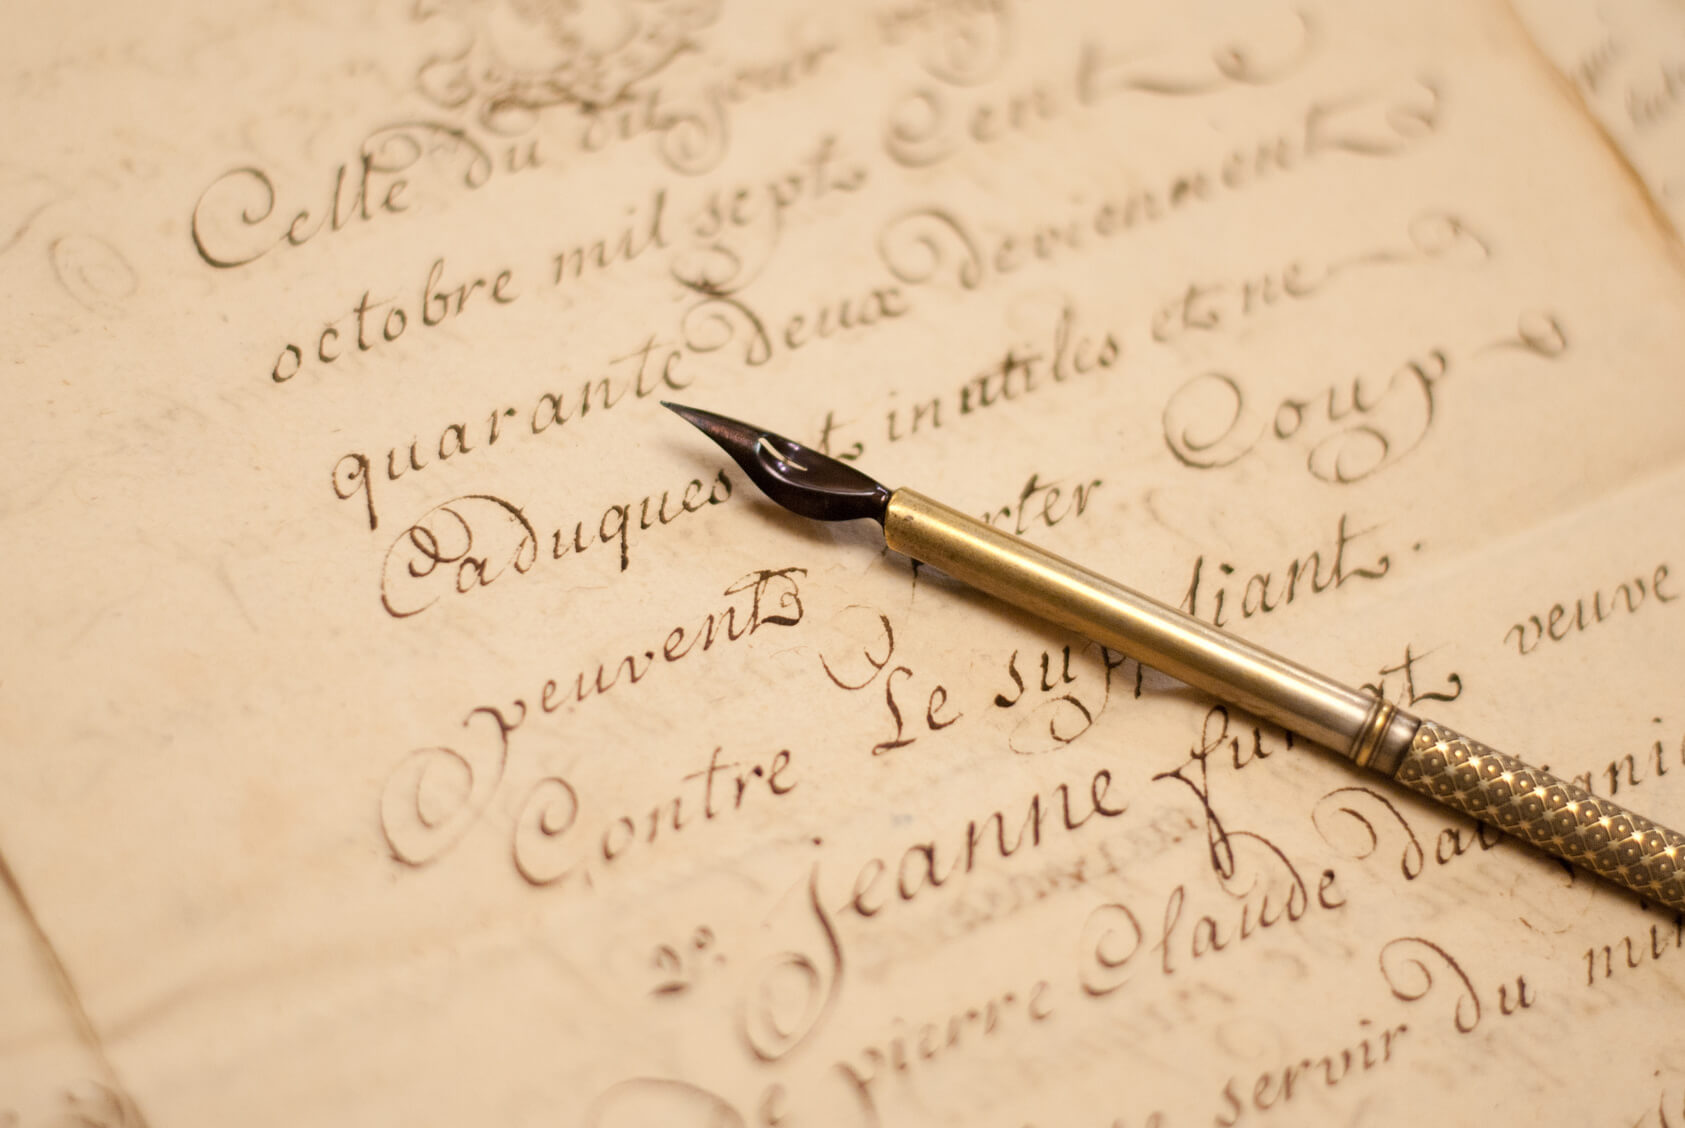 Celle du dit jour
octobre mil sept Cent
quarante deux deviennent
Caduques et inutiles et ne
peuvent porter Coup
Contre Le suppliant.
2º. Jeanne furlat veuve
De pierre Claude
servir du